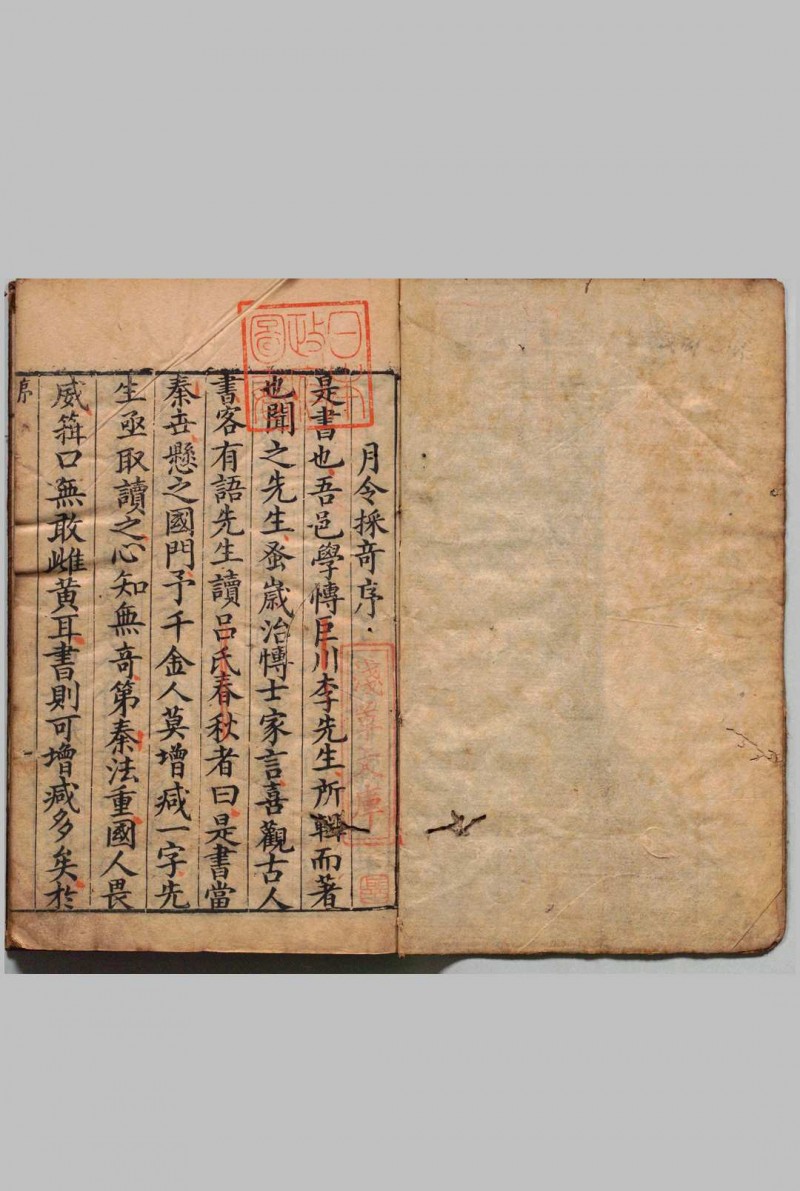 月令採奇序
是書也吾邑學博巨川李先生所輯而著
也聞之先生蚤歲治博士家言喜觀古人
書客有語先生讀呂氏春秋者曰是書當
秦世懸之國門予千金人莫增减一字先
生亟取讀之心知無奇第秦法重國人畏
威箝口無敢雌黄耳書則可增减多矣於
序
日本政圖
淺草文庫